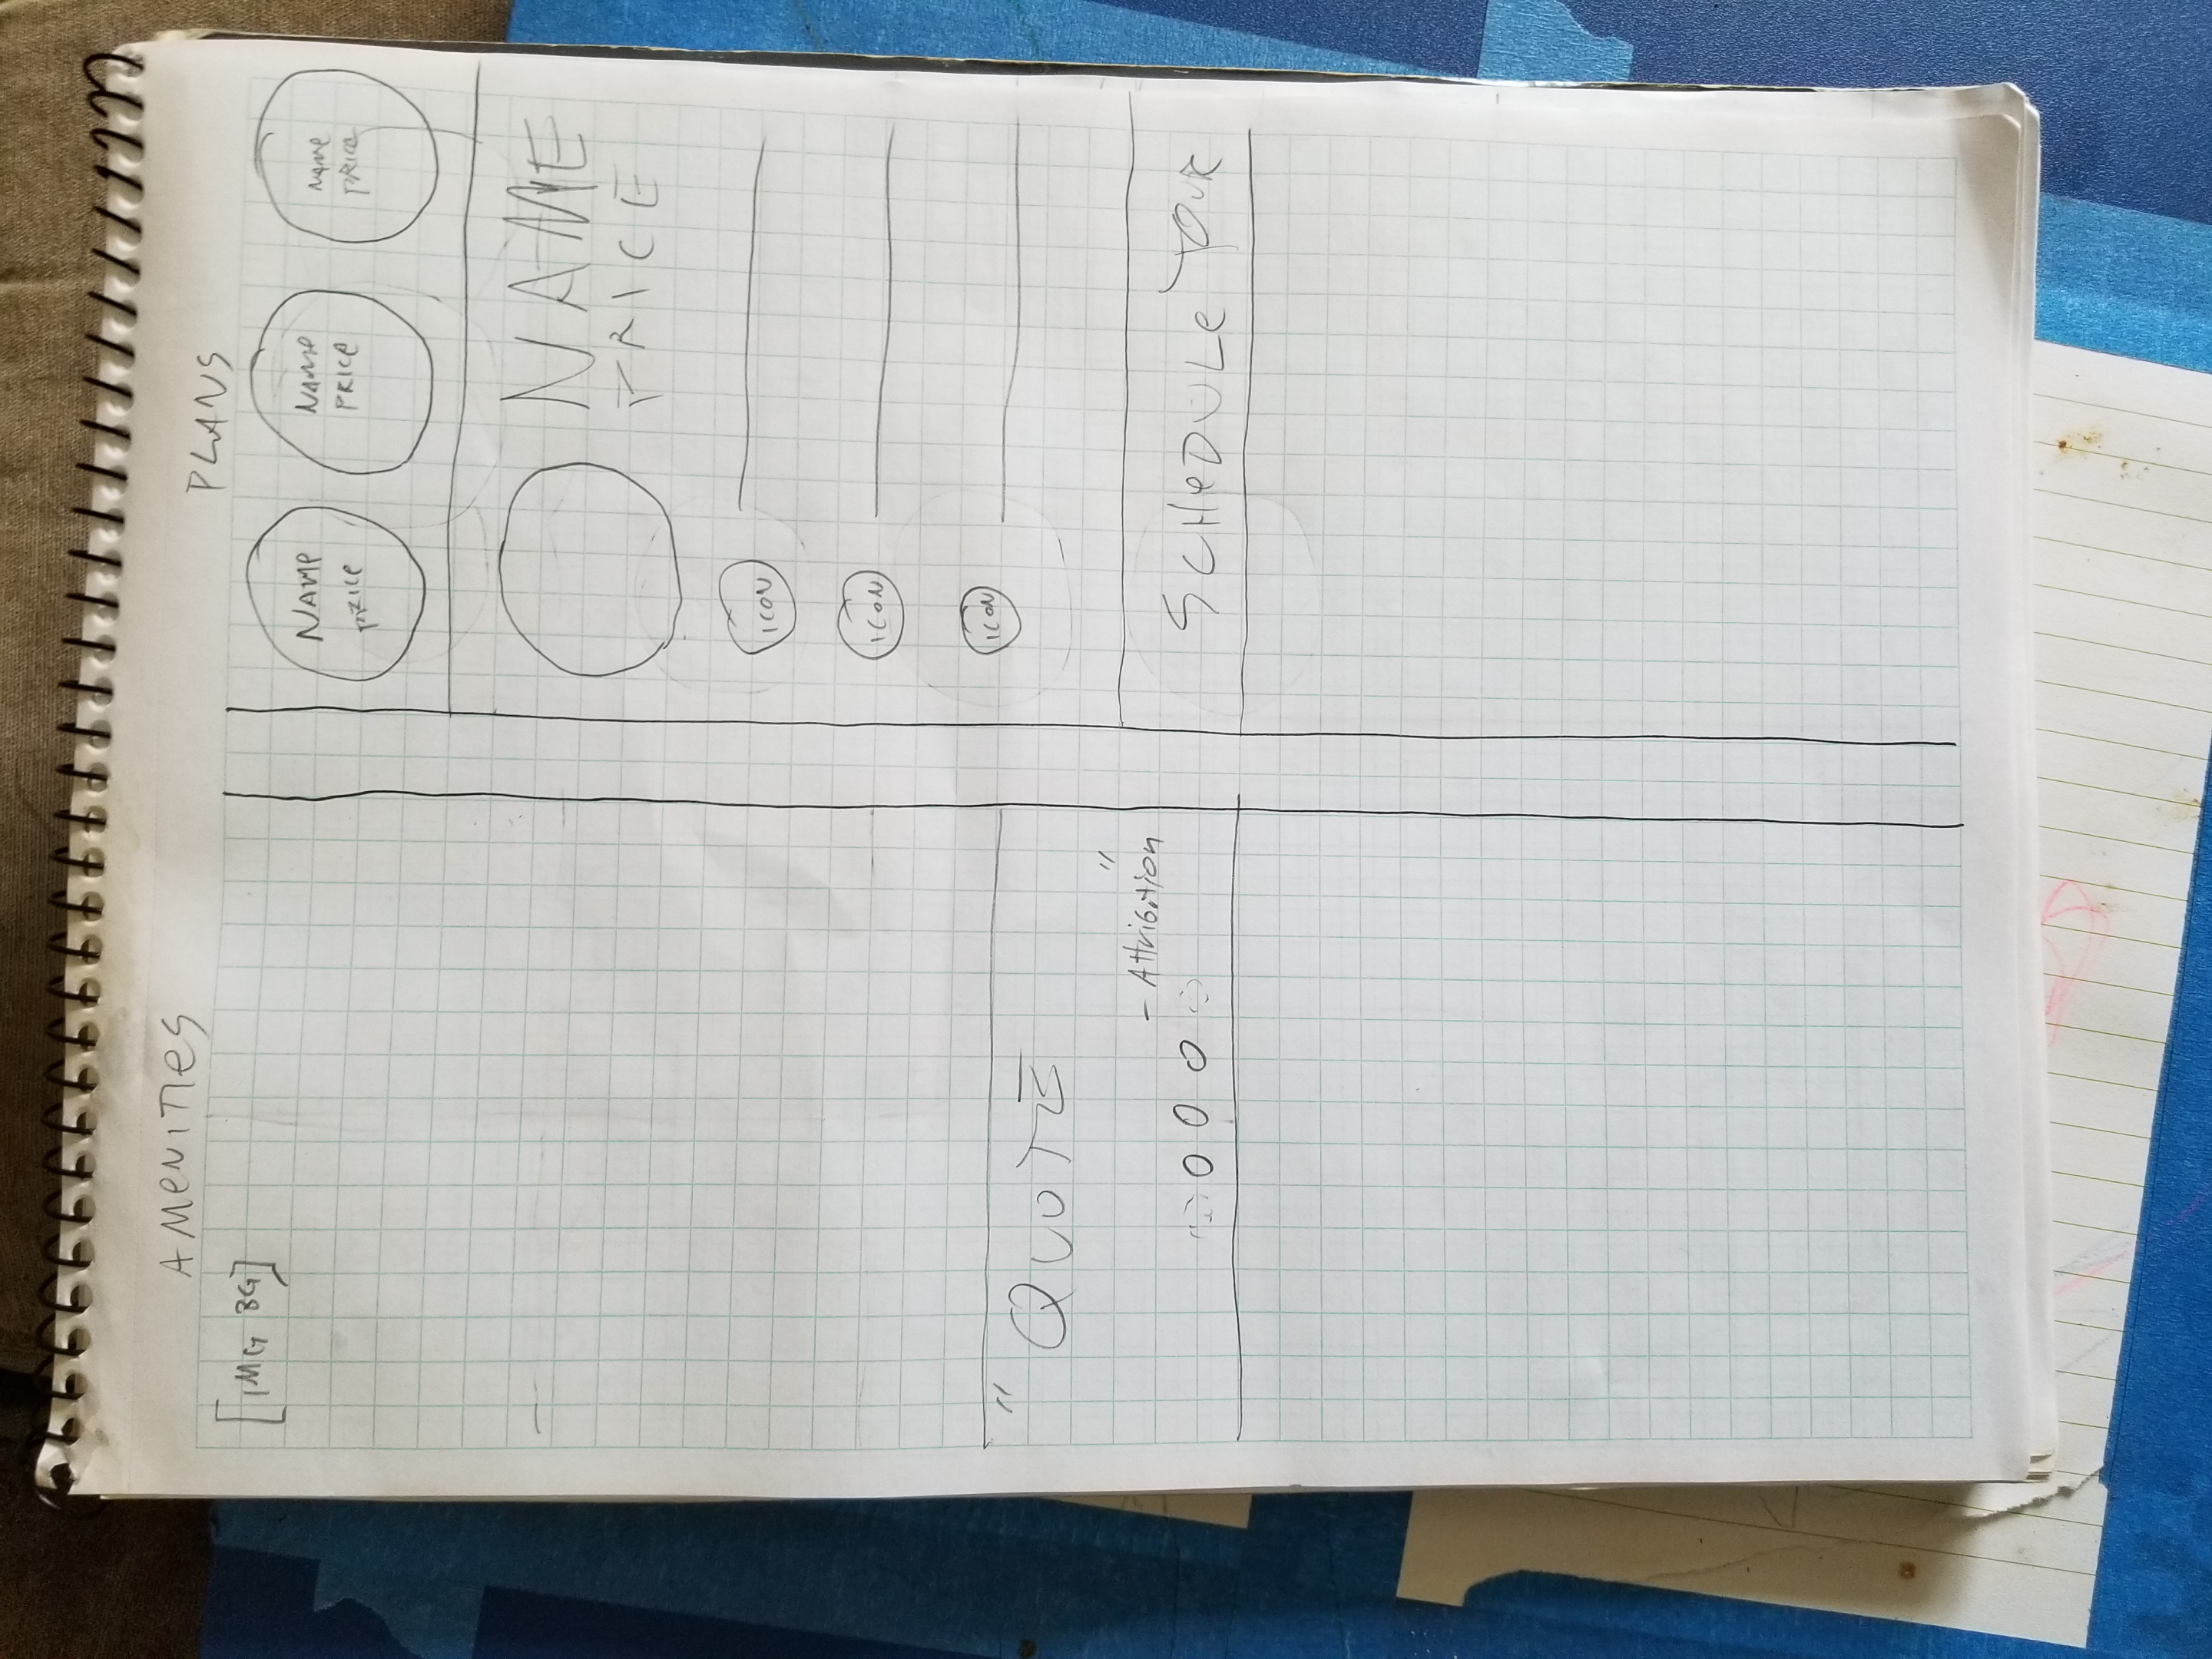 AMENITIES
[IMG BG]
"
QUOTE
"
- Attribution
PLANS
NAME
PRICE
NAME
PRICE
NAME
PRICE
NAME
PRICE
ICON
ICON
ICON
SCHEDULE TOUR